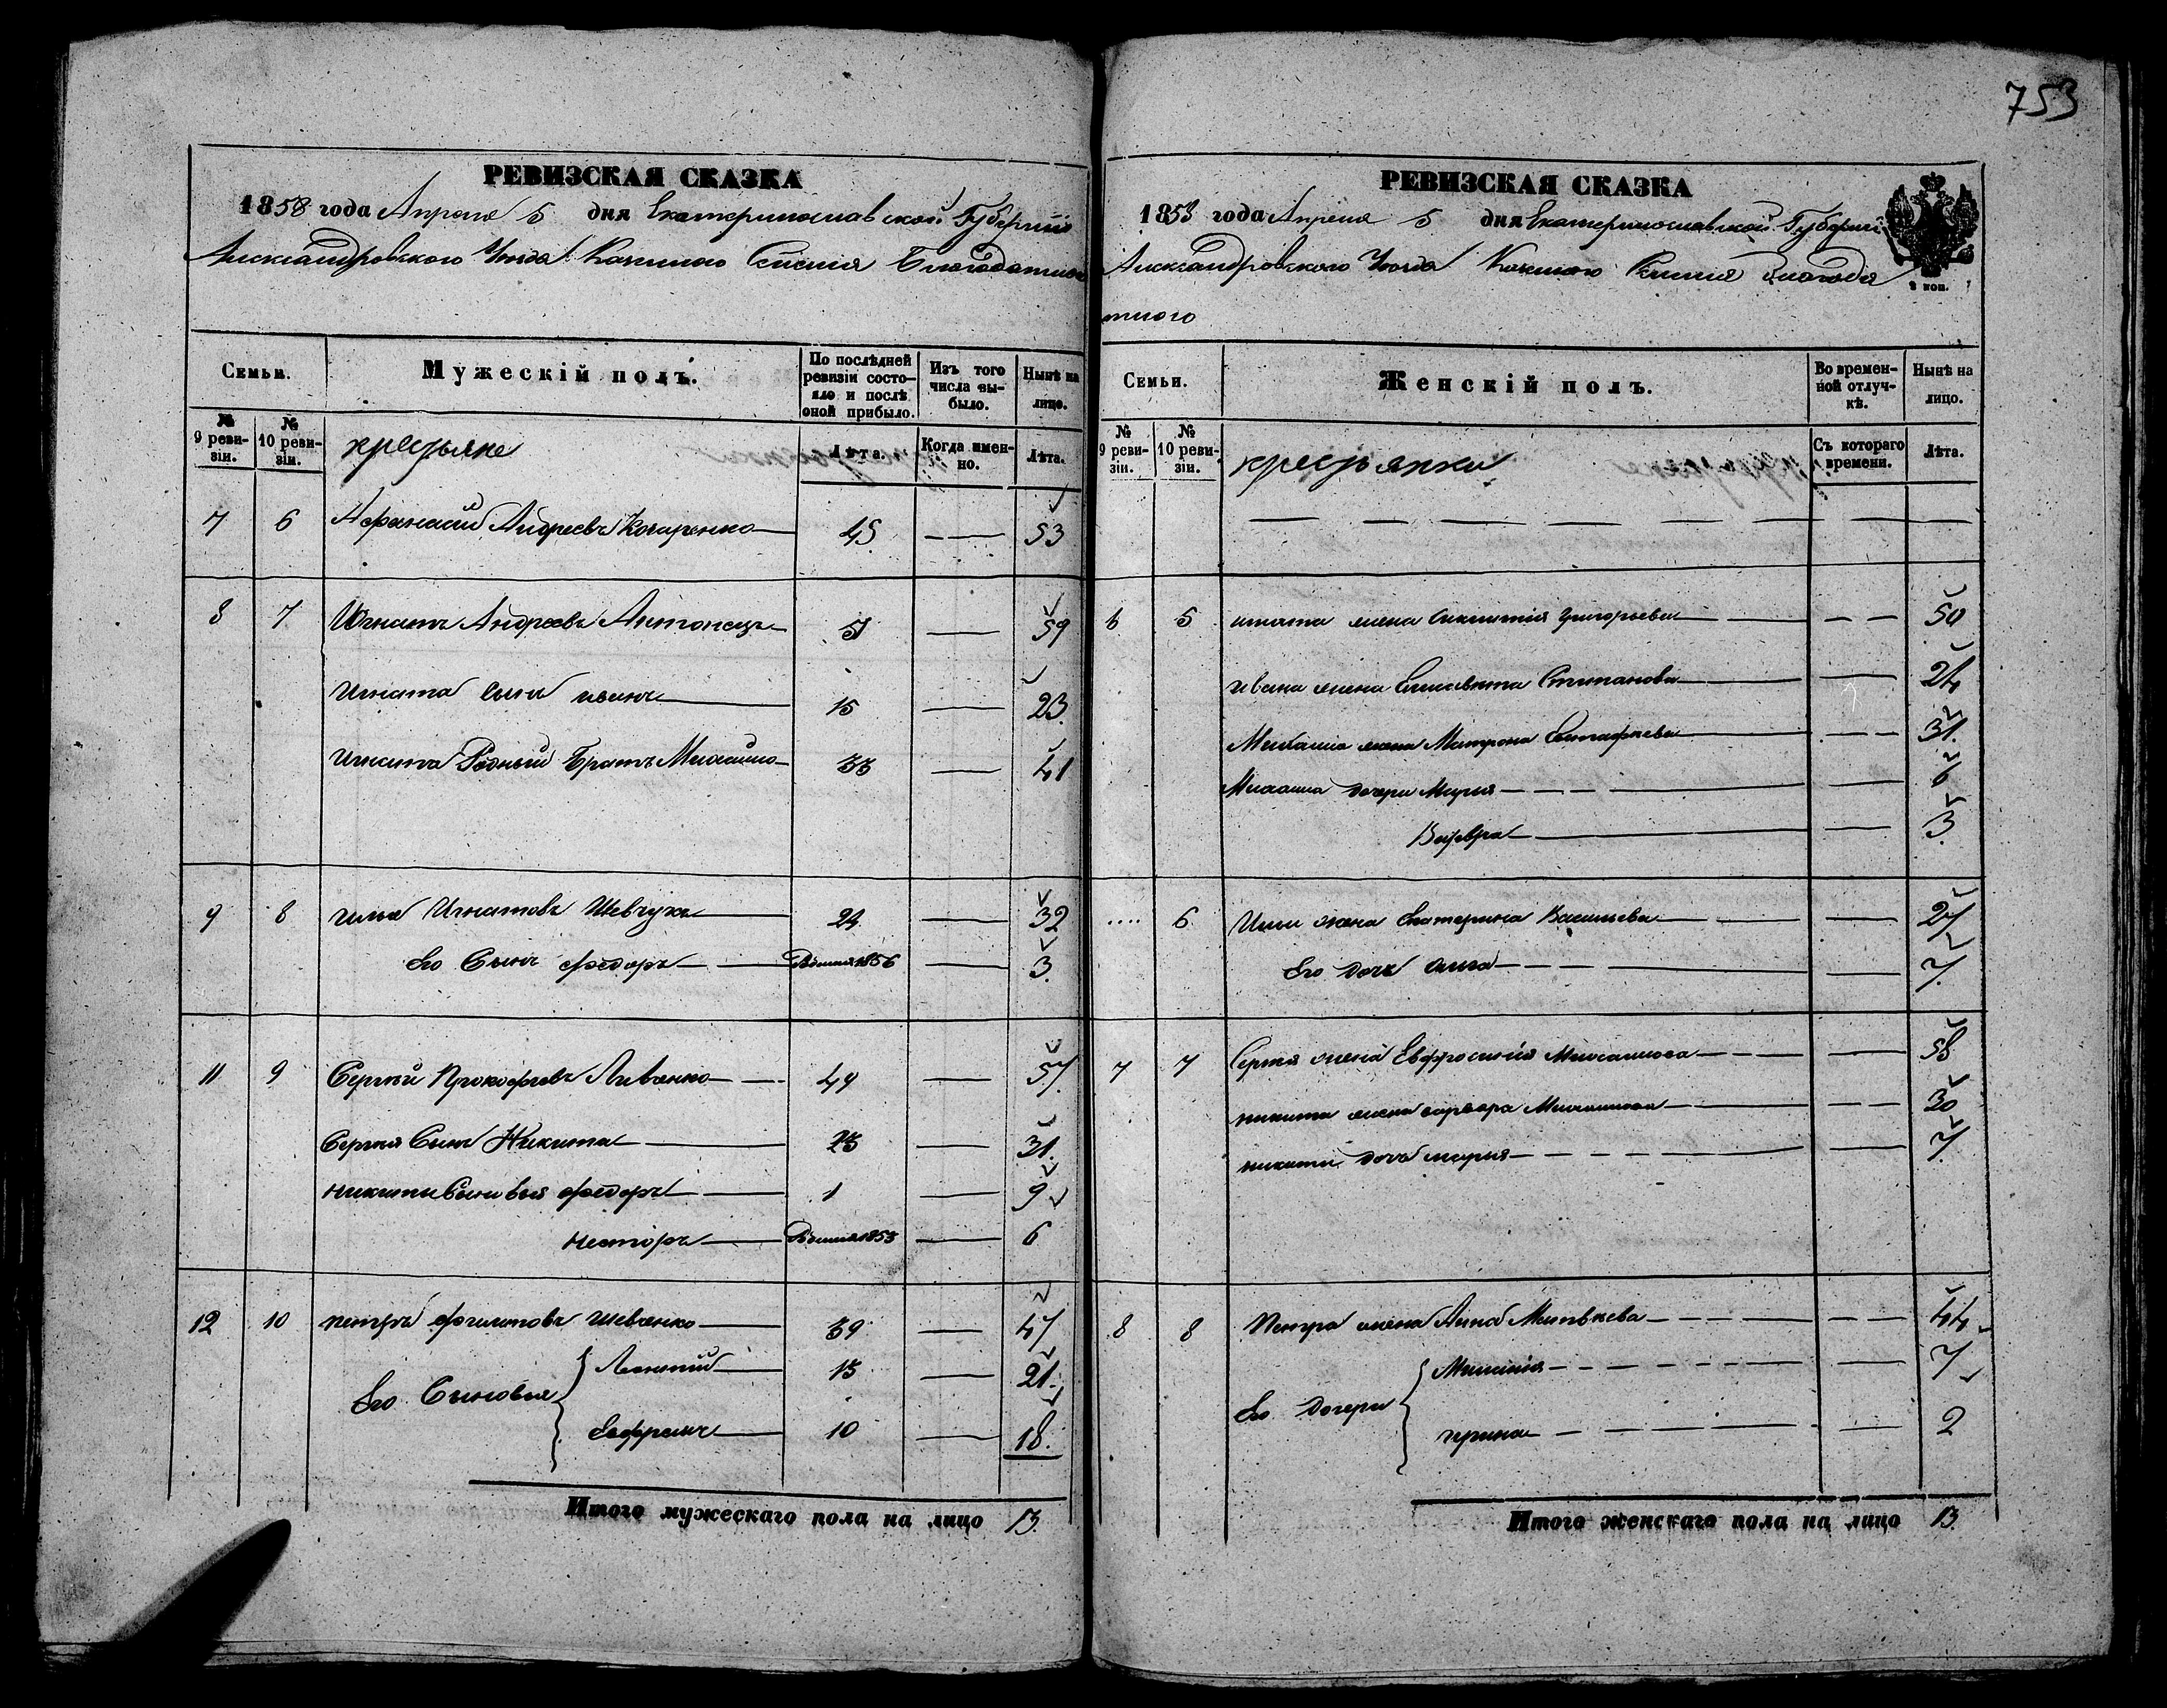 753
РЕВИЗСКАЯ СКАЗКА
1858 года Апреля 5 дня Екатеринославской Губернии
Александровского Уезда Селения Благодатного
Семьи. Мужескій полъ. По послѣдней ревизіи состояло и послѣ оной прибыло. Изъ того числа выбыло. Нынѣ на лицо.
№ 9 ревизіи. № 10 ревизіи. крестьяне Лѣта. Когда именно. Лѣта.
7 6 Афанасий Андреевъ 45 53
8 7 Игнатъ Андреевъ Антонецъ 59
Игната Сынъ иванъ 15 23.
Игната Родный Братъ Михайло 33 41
9 8 илья Игнатовъ Шевчукъ 24 32
Его Сынъ федоръ 1856 3.
11 9 Сергей Прокофьевъ Ливенко 49 57.
Сергея Сынъ Никита 23 31.
никиты Сыновья федоръ 1 9
несторъ 1853 6
12 10 петръ филиповъ Шевченко 39 47
Его Сыновья Леонтий 13 21.
Ефремъ 10 18.
Итого мужескаго пола на лицо 13.
РЕВИЗСКАЯ СКАЗКА
1858 года Апреля 5 дня Екатеринославской Губернии
Александровского Уезда Селения благода
тного
2 коп.
Семьи. Женскій полъ. Во временной отлучкѣ. Нынѣ на лицо.
№ 9 ревизіи. № 10 ревизіи. крестьянки Съ котораго времени. Лѣта.
6 5 игната жена Григорьева 50
ивана жена Елисавета Степанова 24
Михайла жена Матрона Евстафьева 31.
Михайла дочери Мария 6
3.
6 Ильи жена Екатерина Васильева 27
Его дочь 7.
7 7 Сергея жена Евфросиния Михайлова 58
никиты жена варвара Михайлова 30
никиты дочь мария 7.
8 8 Петра жена Анна Матвеева 44
Его дочери 7
ирина 2
Итого женскаго пола на лицо 13.